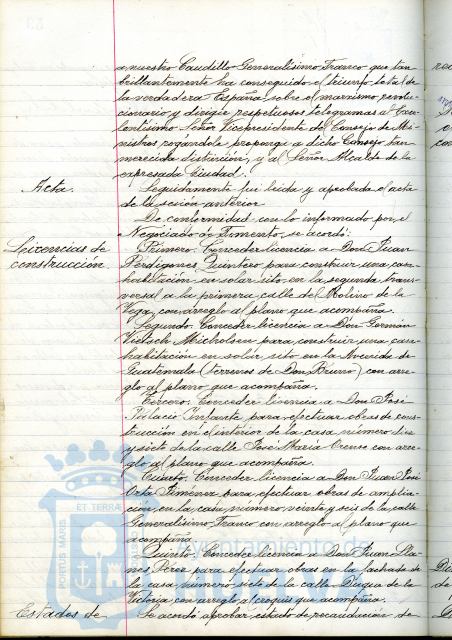 a nuestro Caudillo Generalísimo Franco que tan
brillantemente ha conseguido el triunfo total de
la verdadera España sobre el marxismo revolu-
cionario y dirigir respetuosos telegramas al Exce-
lentísimo Señor Vicepresidente del Consejo de Mi-
nistros rogándole proponga a dicho Consejo tan
merecida distinción, y al Señor Alcalde de la
expresada Ciudad.
Acta.
Seguidamente fue leida y aprobada el acta
de la sesión anterior
De conformidad con lo informado por el
Negociado de Fomento, se acordó:
Licencias de
construcción.
Primero. Conceder licencia a Don Juan
Perdigones Quintero para construir una casa
habitación en solar sito en la segunda trans-
versal a la primera calle del Molino de la
Vega, con arreglo al plano que acompaña.
Segundo. Conceder licencia a Don Germán
Michelsen para construir una casa
habitación en solar sito en la Avenida de
Guatemala (terrenos de Don Bruno) con arre-
glo al plano que acompaña.
Tercero. Conceder licencia a Don José
Palacio Infante para efectuar obras de cons-
trucción en el interior de la casa número diez
y siete de la calle José María Orense con arre-
glo al plano que acompaña.
Cuarto. Conceder licencia a Don Juan José
Orta Jimenez para efectuar obras de amplia-
ción en la casa número veinte y seis de la calle
Generalísimo Franco con arreglo al plano que
acompaña
Quinto. Conceder licencia a Don Juan Lla-
nes Pérez para efectuar obras en la fachada de
la casa número siete de la calle Duque de la
Victoria con arreglo al croquis que acompaña.
Estados de
Se acordó aprobar estado de recaudación de
PORTUS MARIS
ET TERRAE
Ayuntamiento de